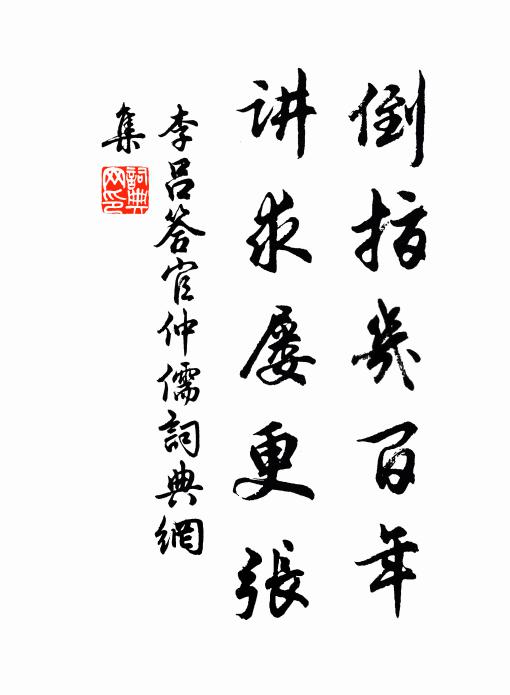 倒指幾百年
讲求屡更張
李吕答官仲儒詞典網
集
詞典网印